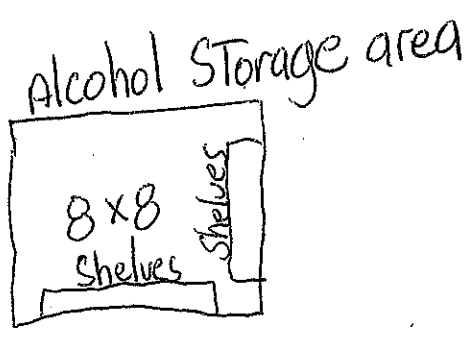 Alcohol Storage area
8x8
Shelves
Shelves